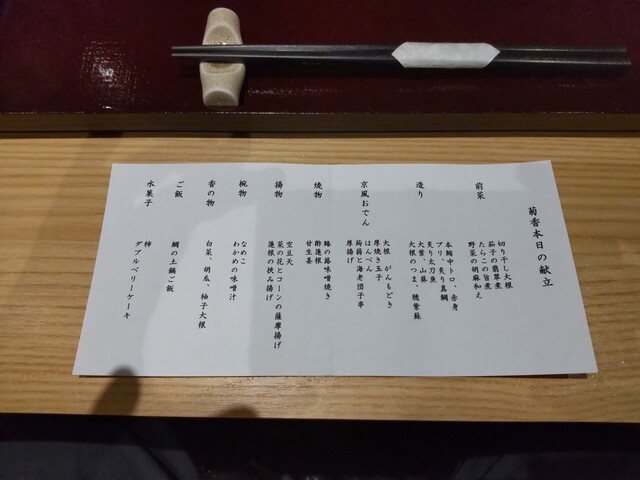 菊香本日の献立
前菜
切り干し大根
茄子の翡翠煮
たらこの旨煮
野菜の胡麻和え
造り
本鮪中トロ、赤身
ブリ、炙り真鯛
炙り太刀魚
大葉、山葵
大根のつま、穂紫蘇
京風おでん
大根 がんもどき
厚焼き玉子
はんぺん
蒟蒻と海老団子串
厚揚げ
焼物
鰆の蕗味噌焼き
酢蓮根
甘生姜
揚物
空豆天
菜の花とコーンの薩摩揚げ
蓮根の挟み揚げ
椀物
なめこ
わかめの味噌汁
香の物
白菜、胡瓜、柚子大根
ご飯
鯛の土鍋ご飯
水菓子
柿
ダブルベリーケーキ